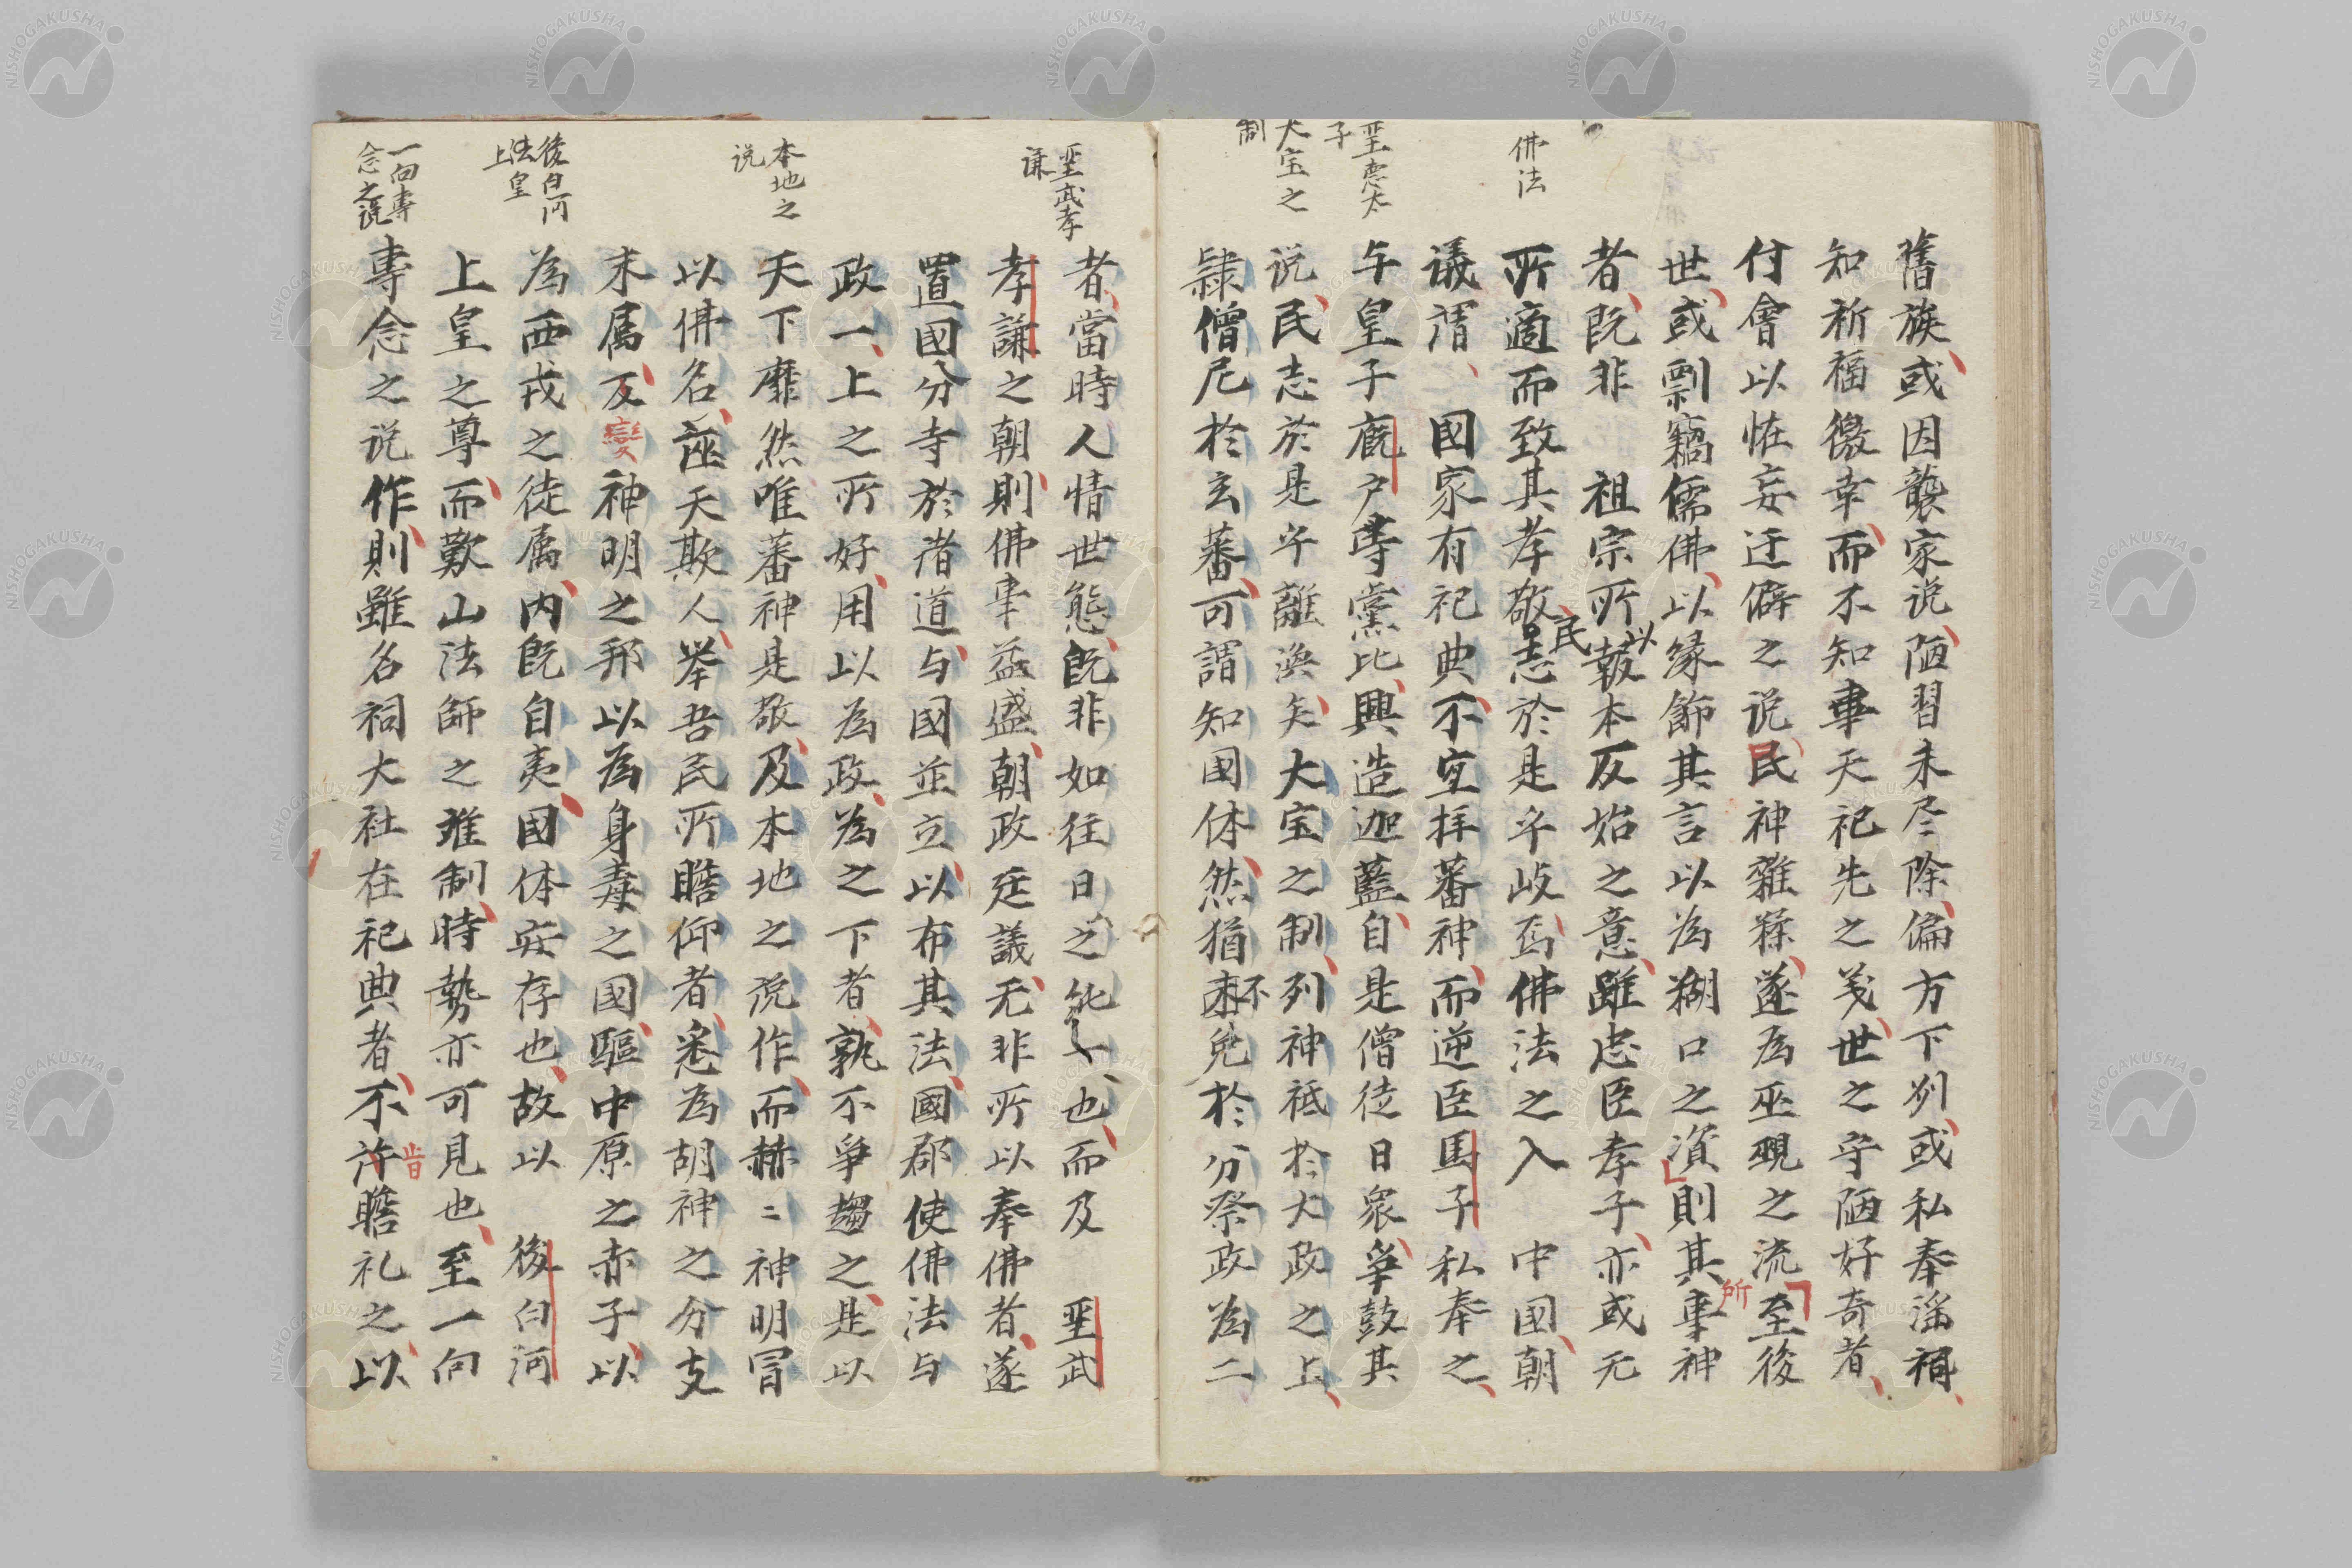 佛法
聖徳太
子
大宝之
制
舊族或因襲家説陋習未尽除偏方下列或私奉淫祠
知祈福徼幸而不知事天祀先之義世之守陋好奇者
付會以怪妄迂僻之説民神雜糅遂為巫覡之流至後
世或剽竊儒佛以緣飾其言以為糊口之資則其事神
所
者既非 祖宗所以報本反始之意雖忠臣孝子亦或无
所適而致其孝敬民志於是乎岐焉佛法之入 中国朝
議謂 國家有祀典不宜拝蕃神而逆臣馬子私奉之
与皇子廐戸等黨比興造迦藍自是僧徒日衆爭鼓其
说民志於是乎離渙矣大宝之制列神祗於大政之上
隷僧尼於玄蕃可謂知国体然猶不免於分祭政為二
聖武孝
謙
本地之
说
後白河
法皇
上
一向専
念之说
者當時人情世態既非如往日之純一也而及 聖武
孝謙之朝則佛事益盛朝政廷議无非所以奉佛者遂
置國分寺於诸道与國並立以布其法國郡使佛法与
政一上之所好用以為政為之下者孰不爭趨之是以
天下靡然唯蕃神是敬及本地之説作而赫〻神明冒
以佛名誣天欺人举吾民所瞻仰者悉為胡神之分支
末属反變神明之邦以為身毒之國驅中原之赤子以
為西戎之徒属内既自夷國体安存也故以 後白河
上皇之尊而歎山法師之难制時勢亦可見也至一向
専念之説作則雖名祠大社在祀典者不許瞻礼之以
皆
NISHOGAKUSHA